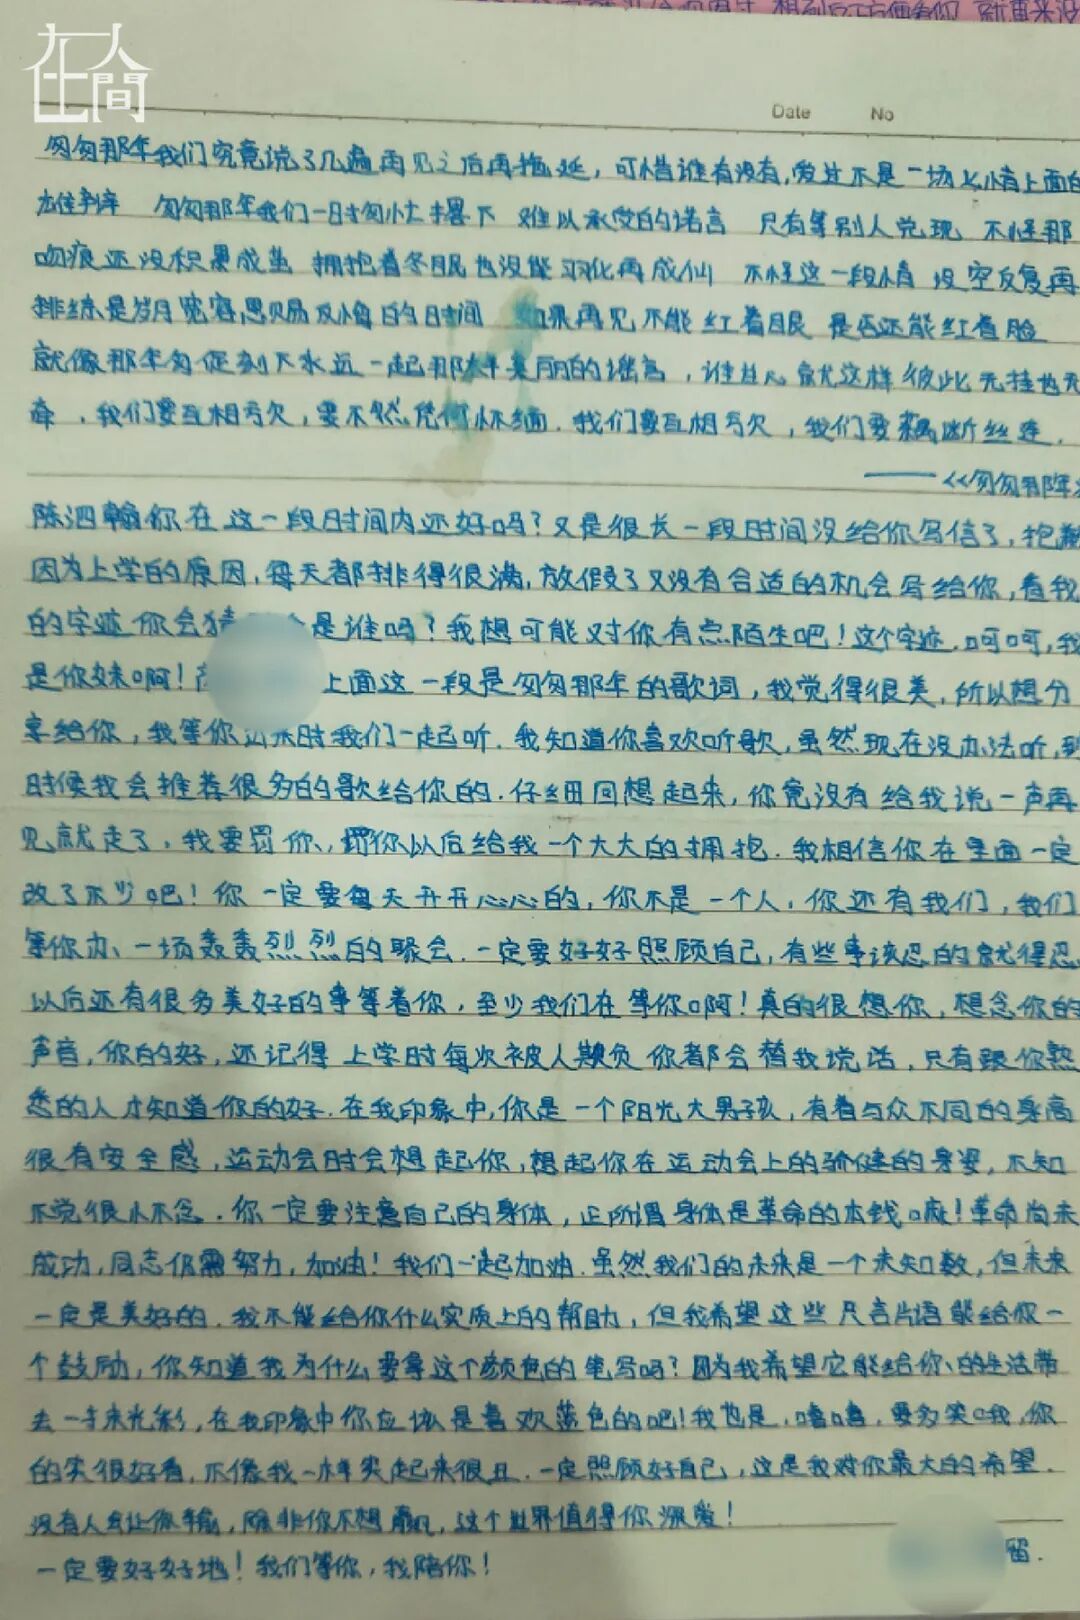 在人間
Date No
匆匆那年我们究竟说了几遍再见之后再拖延，可惜谁有没有，爱过不是一场七情上面的
雄辩 匆匆那年我们一时匆忙撂下 难以承受的诺言 只有等别人兑现 不怪那
吻痕还没积累成茧 拥抱着冬眠也没能羽化再成仙 不怪这一段情 没空反复再
排练是岁月宽容恩赐反悔的时间 如果再见不能红着眼 是否还能红着脸
就像那年匆促刻下永远一起那样美丽的谣言，谁甘心就这样彼此无挂也无
牵，我们要互相亏欠，要不然凭何怀缅．我们要互相亏欠，我们要藕断丝连．
——《匆匆那年》
陈泗翰你在这一段时间内还好吗？又是很长一段时间没给你写信了，抱歉
因为上学的原因，每天都排得很满，放假了又没有合适的机会写给你，看我
的字迹你会猜 是谁吗？我想可能对你有点陌生吧！这个字迹．呵呵，我
是你妹啊！ 上面这一段是匆匆那年的歌词，我觉得很美，所以想分
享给你，我等你出来时我们一起听．我知道你喜欢听歌，虽然现在没办法听，到
时候我会推荐很多的歌给你的．仔细回想起来，你竟没有给我说一声再
见就走了，我要罚你、罚你以后给我一个大大的拥抱．我相信你在里面一定
改了不少吧！你一定要每天开开心心的，你不是一个人，你还有我们，我们
等你办、一场轰轰烈烈的聚会．一定要好好照顾自己，有些事该忍的就得忍，
以后还有很多美好的事等着你，至少我们在等你啊！真的很想你，想念你的
声音，你的好，还记得上学时每次被人欺负你都会替我说话，只有跟你熟
悉的人才知道你的好．在我印象中，你是一个阳光大男孩，有着与众不同的身高
很有安全感，运动会时会想起你，想起你在运动会上的矫健的身姿，不知
不觉很小不念．你一定要注意自己的身体，正所谓身体是革命的本钱嘛！革命尚未
成功，同志仍需努力，加油！我们一起加油．虽然我们的未来是一个未知数，但未来
一定是美好的．我不能给你什么实质上的帮助，但我希望这些只言片语能给你一
个鼓励，你知道我为什么要拿这个颜色的笔写吗？因为我希望它能给你的生活带
去一抹光彩，在我印象中你应该是喜欢蓝色的吧！我也是，嘻嘻，要多笑哦，你
的笑很好看，不像我一样笑起来很丑．一定照顾好自己，这是我对你最大的希望．
没有人会让你输，除非你不想赢，这个世界值得你深爱！
一定要好好地！我们等你，我陪你！ 留．